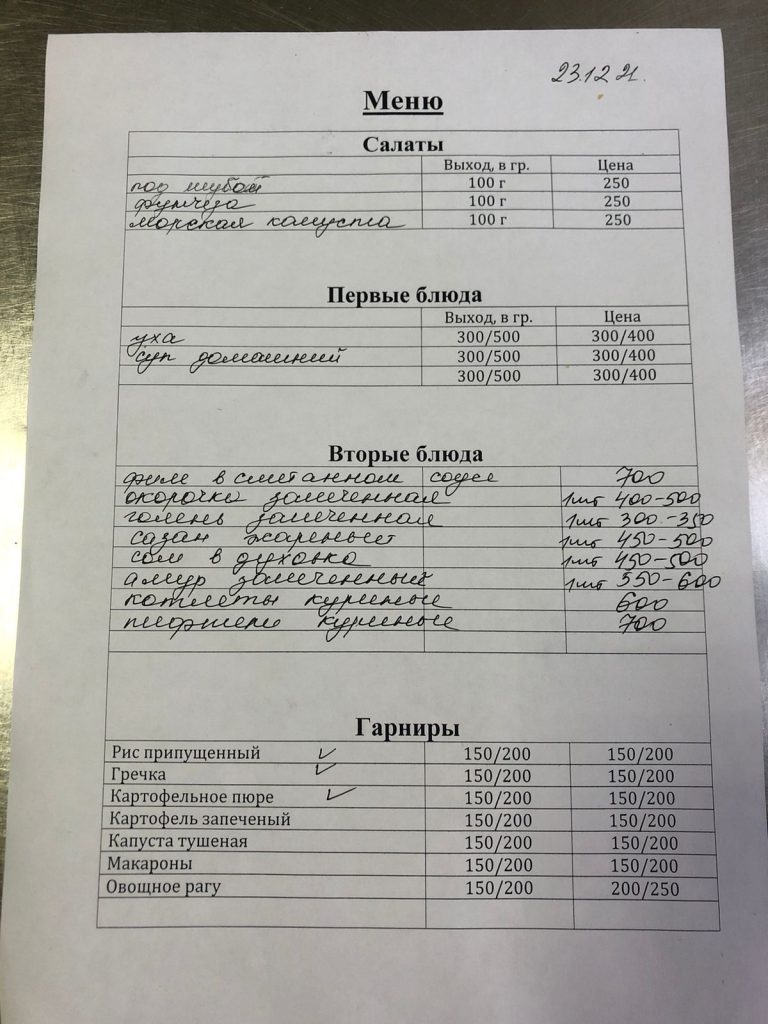 23.12 21.
Меню
Салаты
Выход, в гр. Цена
под шубой 100 г 250
фунчеза 100 г 250
морская капуста 100 г 250
Первые блюда
Выход, в гр. Цена
уха 300/500 300/400
суп домашний 300/500 300/400
300/500 300/400
Вторые блюда
филе в сметанном соусе 700
окорочка запеченная 1шт 400-500
голень запеченная 1шт 300-350
сазан жареный 1шт 450-500
сом в духовке 1шт 450-500
амур запеченный 1шт 550-600
котлеты куриные 600
куриные 700
Гарниры
Рис припущенный ✓ 150/200 150/200
Гречка ✓ 150/200 150/200
Картофельное пюре ✓ 150/200 150/200
Картофель запеченый 150/200 150/200
Капуста тушеная 150/200 150/200
Макароны 150/200 150/200
Овощное рагу 150/200 200/250